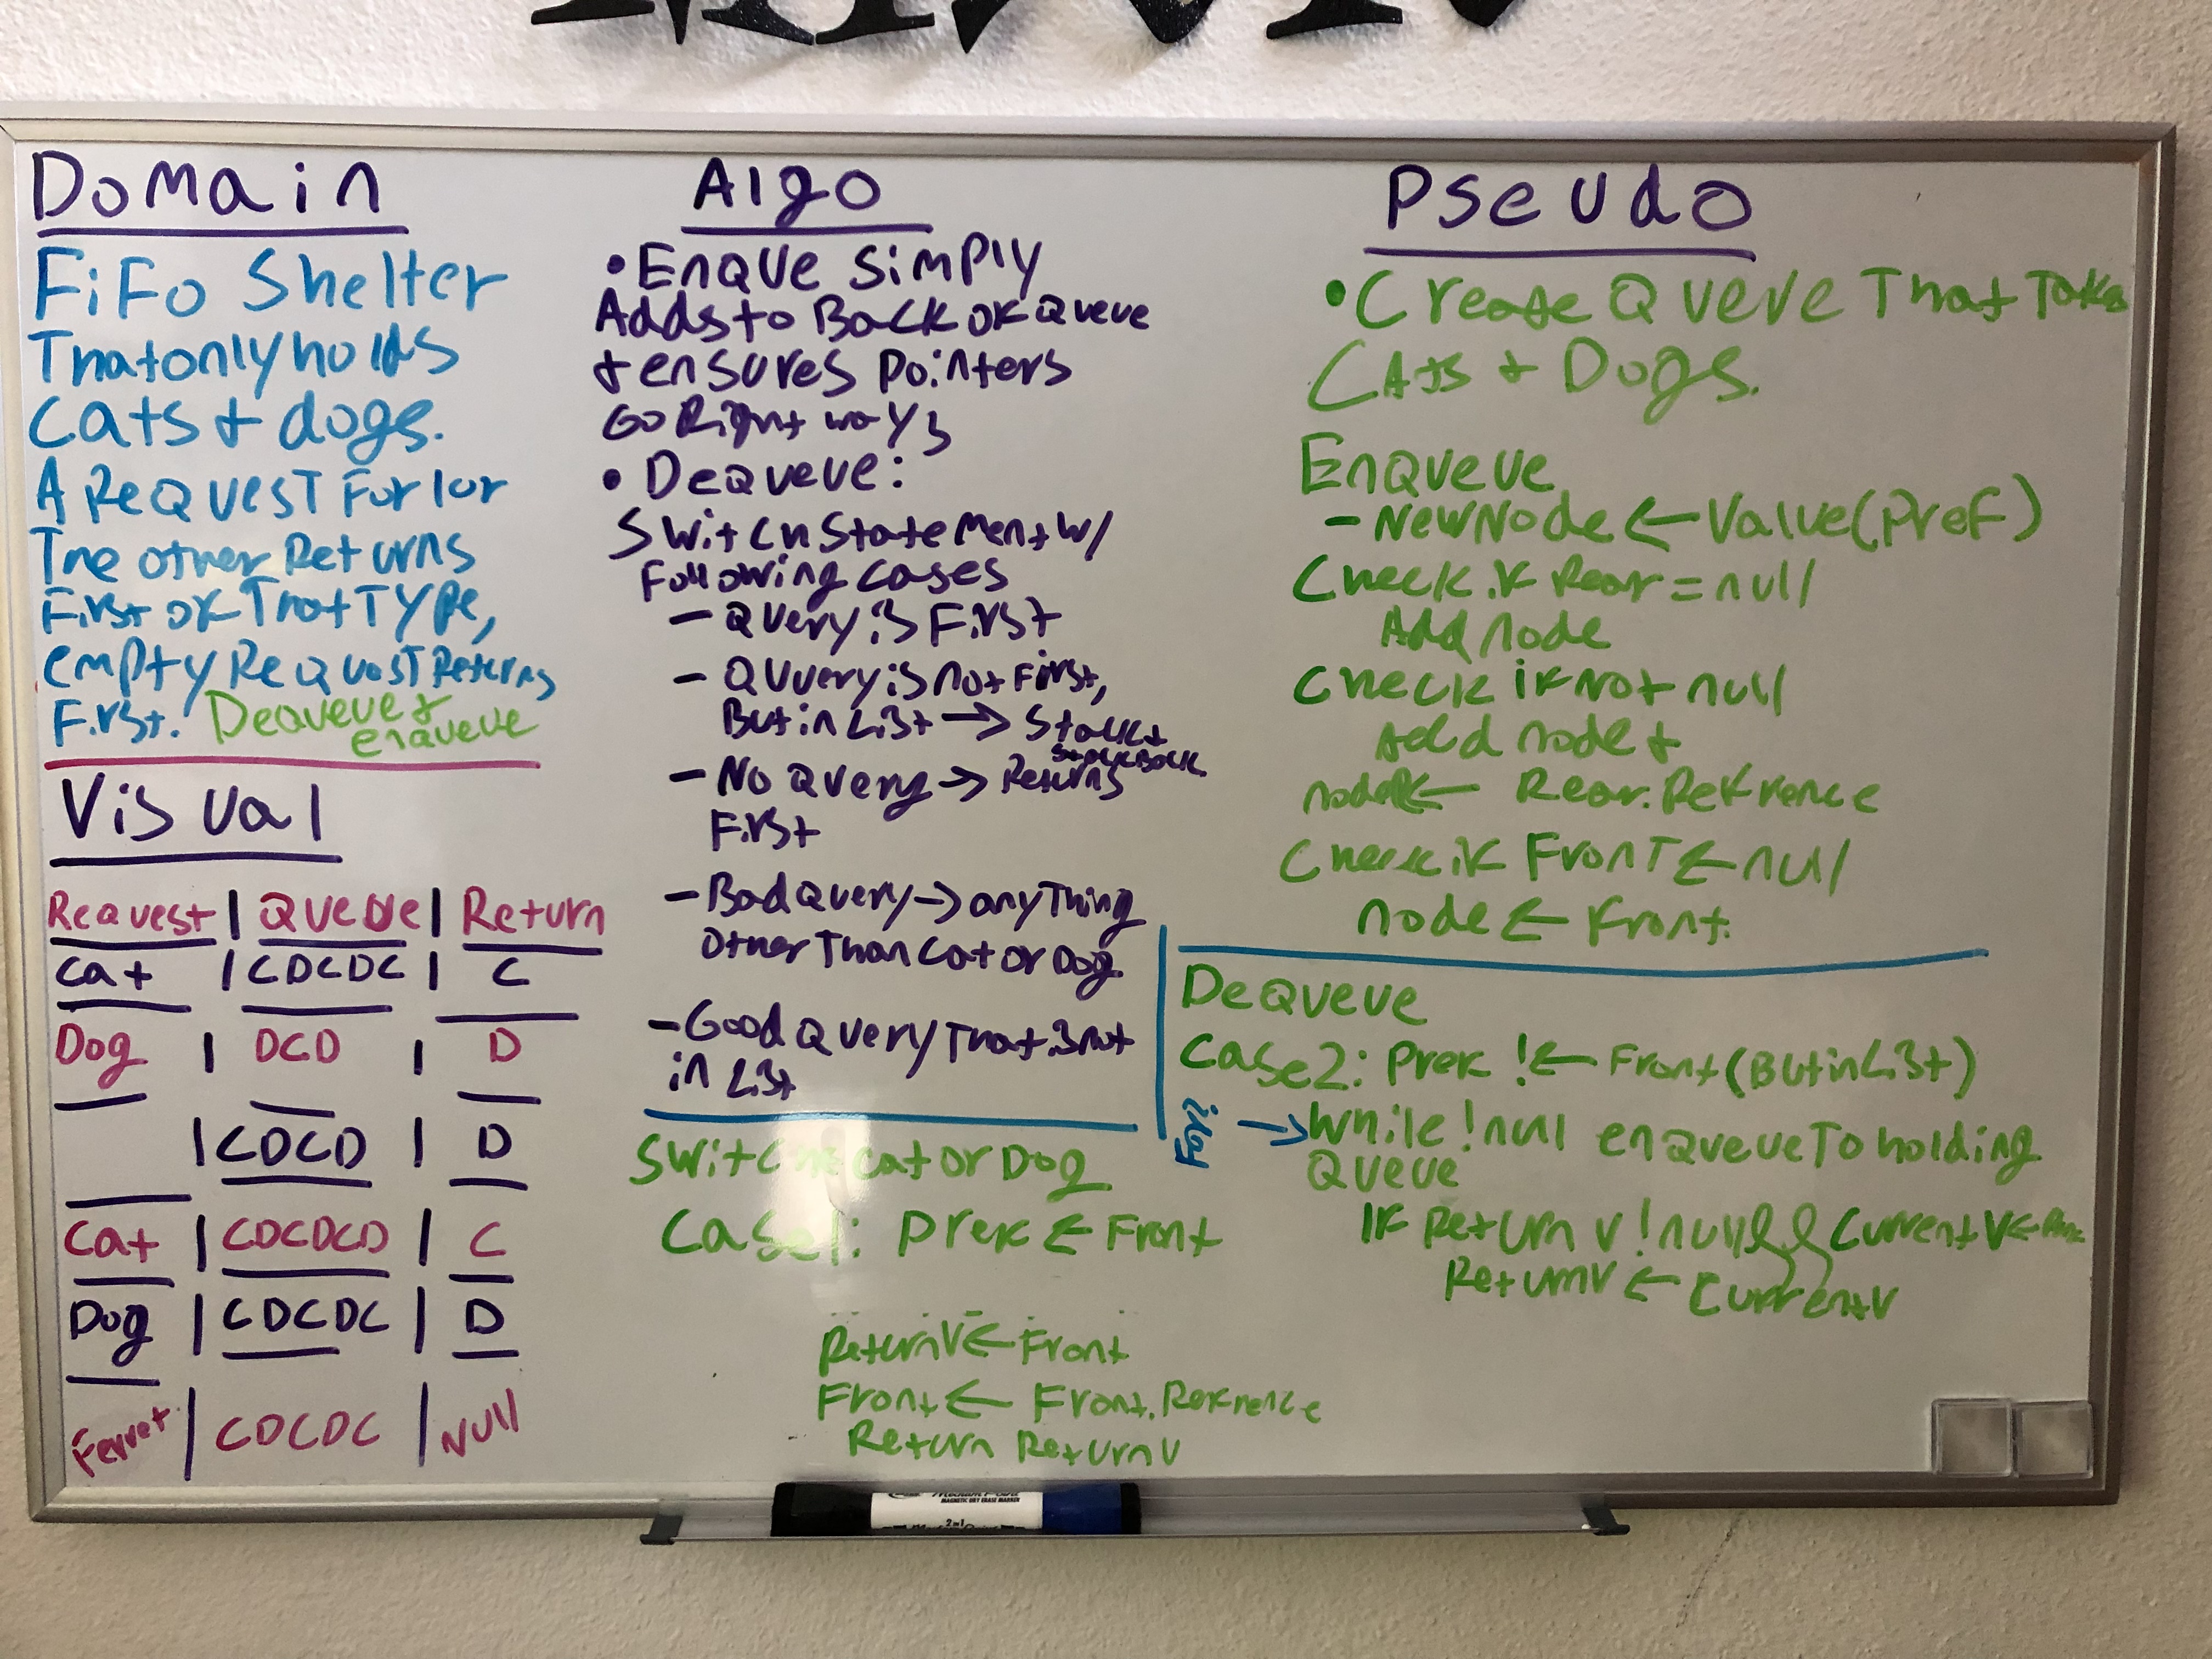 Domain
FiFo Shelter
That only holds
Cats + dogs.
A Request For 1 or
The other Returns
First of That Type,
empty Request Returns
First. Dequeue +
enqueue
Visual
Request | Queue | Return
Cat | CDCDC | C
Dog | DCD | D
| CDCD | D
Cat | CDCDCD | C
Dog | CDCDC | D
Ferret | CDCDC | Null
Algo
• Enque Simply
Adds to Back of Queue
+ ensures Pointers
Go Right ways
• Dequeue:
Switch Statement w/
Following cases
- Query is First
- Quuery is not First,
But in List → Stack +
Stack Back.
- No Query → Returns
First
- Bad Query → anything
Other Than Cat or Dog.
- Good Query That is not
in List
Switch Cat or Dog
Case1: Pref ← Front
ReturnV ← Front
Front ← Front.Refrence
Return ReturnV
Pseudo
• Create Queue That Takes
Cats + Dogs.
Enqueue
- NewNode ← Value(Pref)
Check if Rear = null
Add node
Check if Not null
Add node +
node ← Rear.Refrence
Check if Front ← null
node ← Front.
Dequeue
Case2: Pref !← Front (But in List)
→ While !null enqueue To holding
Queue
If Return V !null && Current V ←
ReturnV ← CurrentV
2in1
MAGNETIC DRY ERASE MARKER